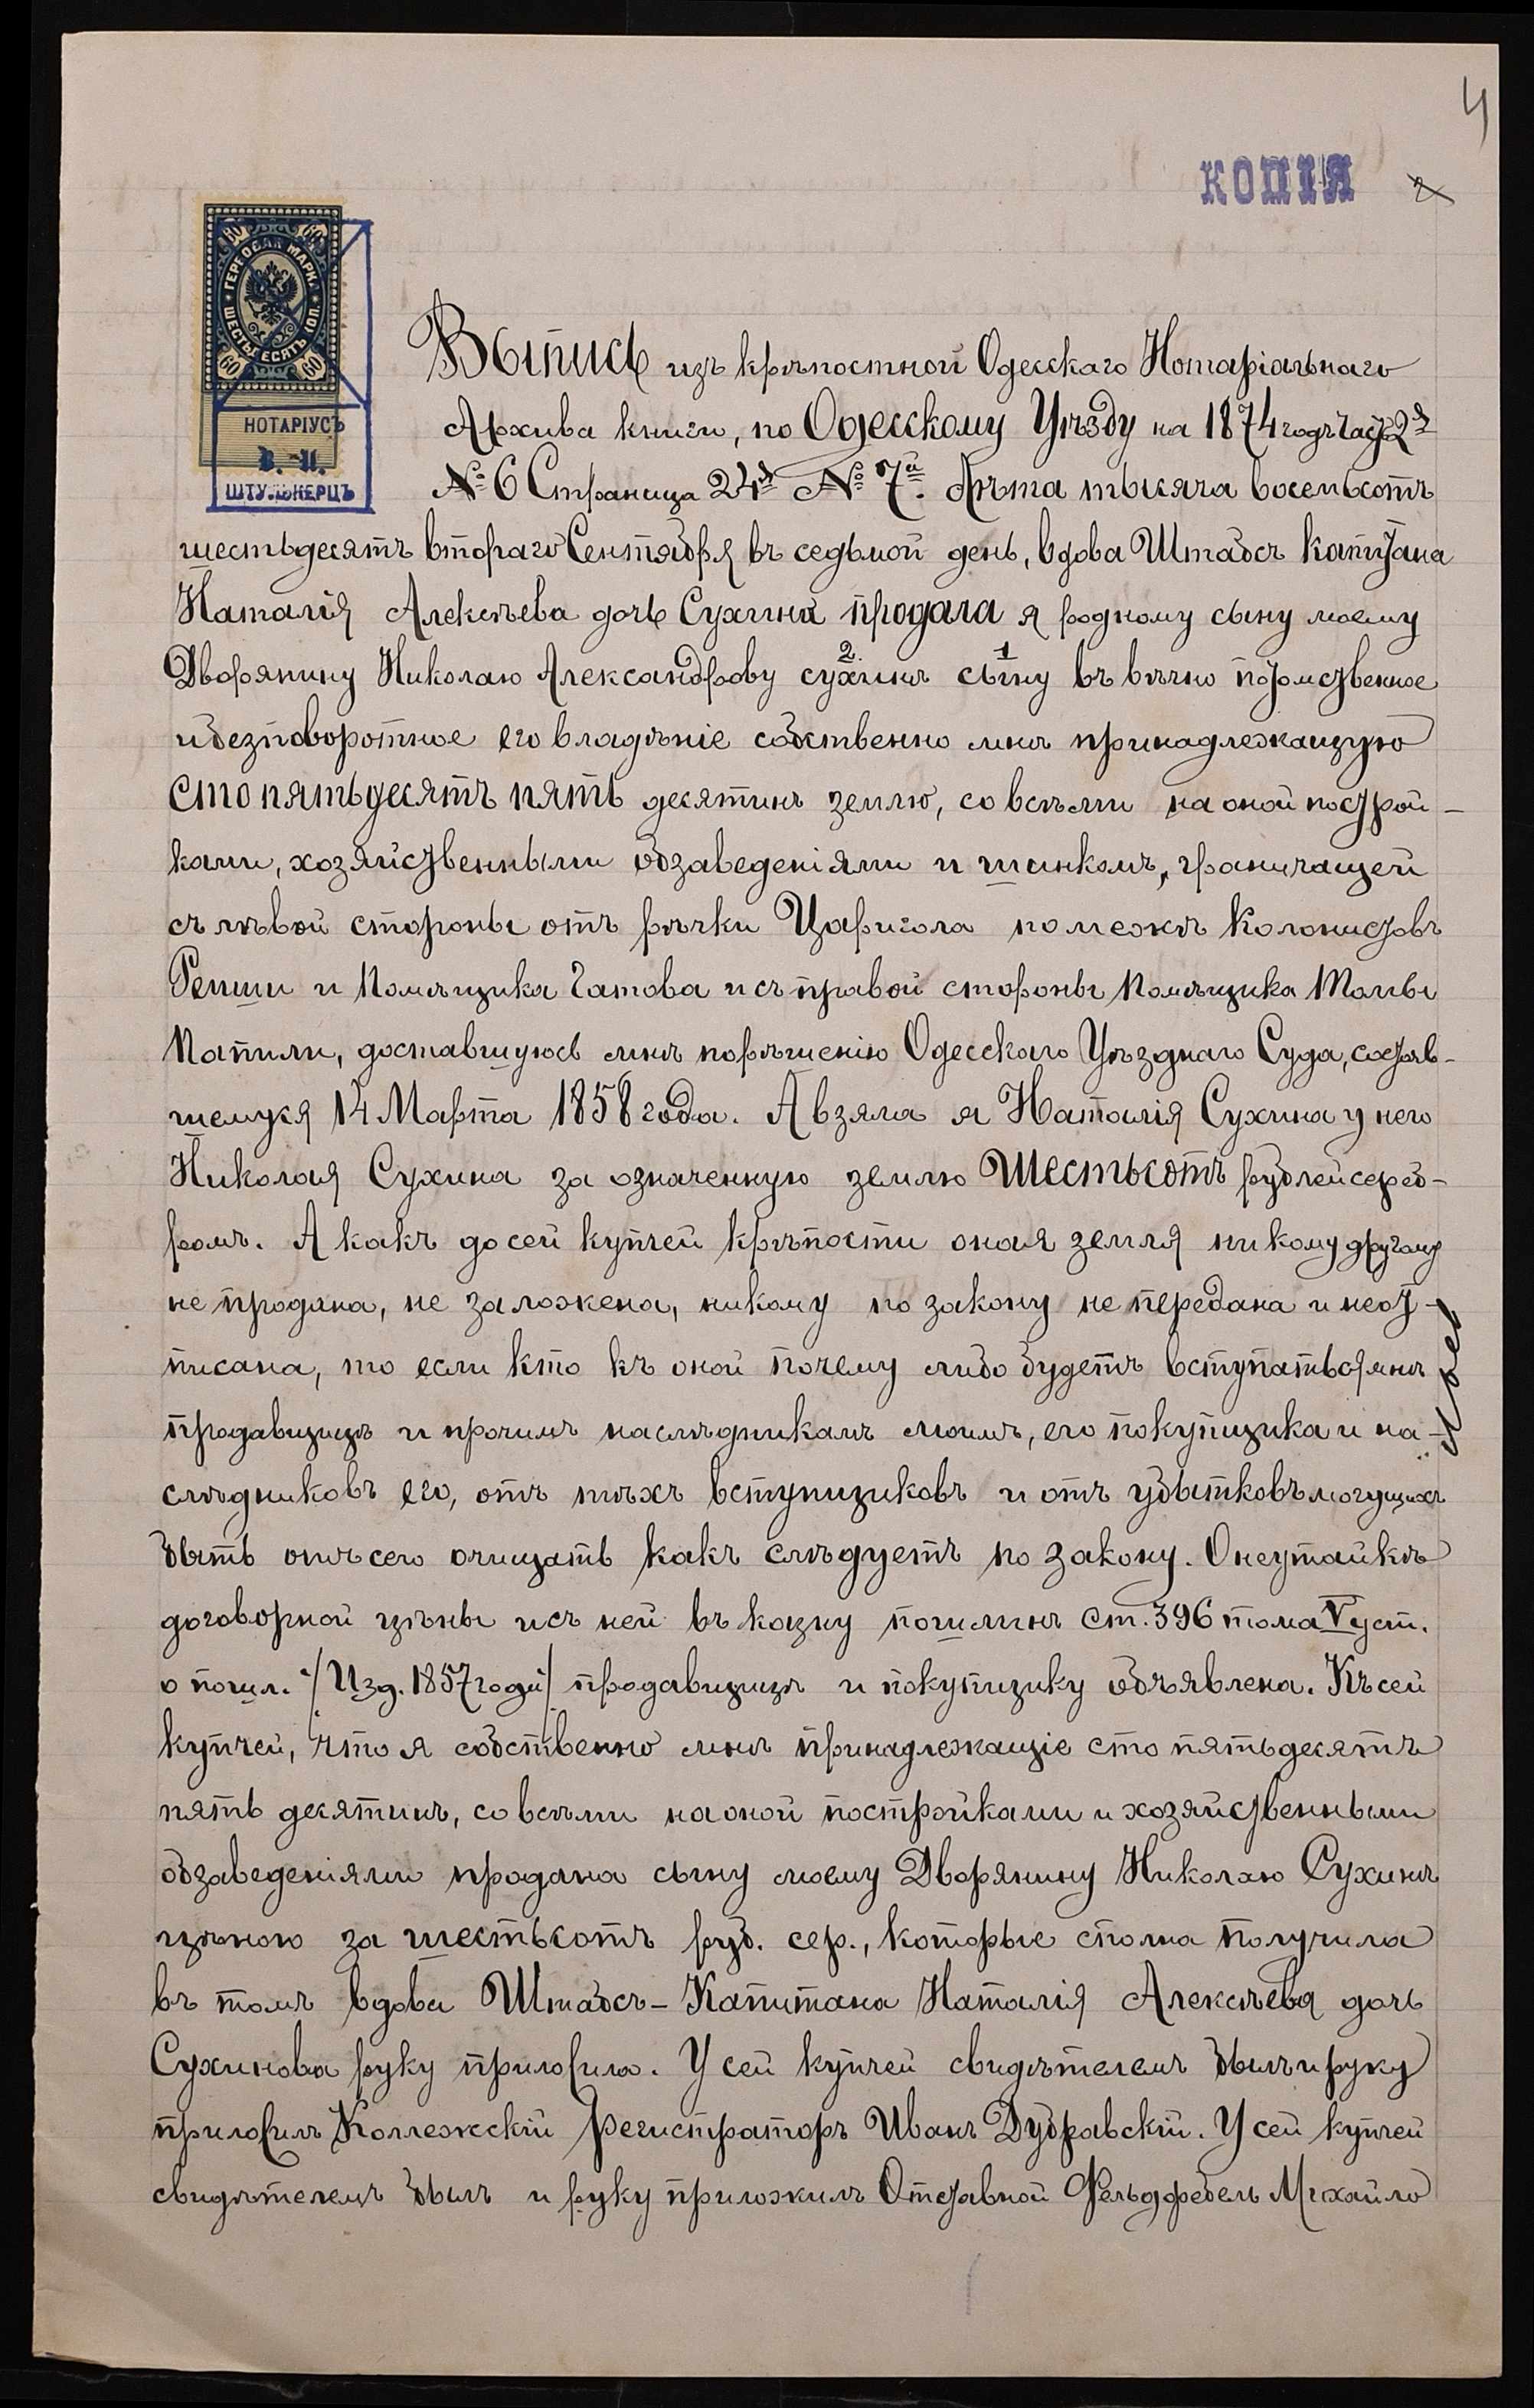 4
КОПІЯ
2
60 60
ГЕРБОВАЯ МАРКА
ШЕСТЬДЕСЯТЪ КОП.
60 60
НОТАРІУСЪ
В. И.
ШТУЛЬКЕРЦЪ
Выпись изъ крѣпостной Одесскаго Нотаріальнаго
Архива книги, по Одесскому Уѣзду на 1874 годъ часть 2я
№ 6 Страница 24я № 7й. Лѣта тысяча восемьсотъ
шестьдесятъ втораго Сентября въ седьмой день, вдова Штабсъ капитана
Наталія Алексѣева дочь Сухина продала я родному сыну моему
Дворянину Николаю Александрову сухинѣ 2 сыну 1 въ вѣчно потомственное
и безповоротное его владѣніе собственно мнѣ принадлежащую
сто пятьдесятъ пять десятинъ землю, со всѣми на оной построй-
ками, хозяйственными обзаведеніями и шинкомъ, граничащей
съ лѣвой стороны отъ рѣчки Царигола по межѣ Колонистовъ
Ренши и Помѣщика Гатова и съ правой стороны Помѣщика Томы
Папили, доставшуюсь мнѣ по рѣшенію Одесскаго Уѣзднаго Суда, состояв-
шемуся 14 Марта 1858 года. А взяла я Наталія Сухина у него
Николая Сухина за означенную землю Шестьсотъ рублей сереб-
ромъ. А какъ до сей купчей крѣпости оная земля никому другому
не продана, не заложена, никому по закону не передана и неот-
писана, то если кто къ оной почему либо будетъ вступаться мнѣ
продавщицѣ и прочимъ наслѣдникамъ моимъ, его покупщика и на-
слѣдниковъ его, отъ тѣхъ вступщиковъ и отъ убытковъ могущихъ
быть отъ сего очищать какъ слѣдуетъ по закону. О неутайкѣ
договорной цѣны и съ ней въ казну пошлинъ ст. 396 тома V уст.
о пошл. /Изд. 1857 года/ продавщицѣ и покупщику объявлена. Къ сей
купчей, что я собственно мнѣ принадлежащіе сто пятьдесятъ
пять десятинъ, со всѣми на оной постройками и хозяйственными
обзаведеніями продана сыну моему Дворянину Николаю Сухинѣ
цѣною за шестьсотъ руб. сер., которые сполна получила
въ томъ вдова Штабсъ-Капитана Наталія Алексѣева дочь
Сухинова руку приложила. У сей купчей свидѣтелемъ былъ и руку
приложилъ Коллежскій Регистраторъ Иванъ Дубравскій. У сей купчей
свидѣтелемъ былъ и руку приложилъ Отставной Фельдфебель Михайло